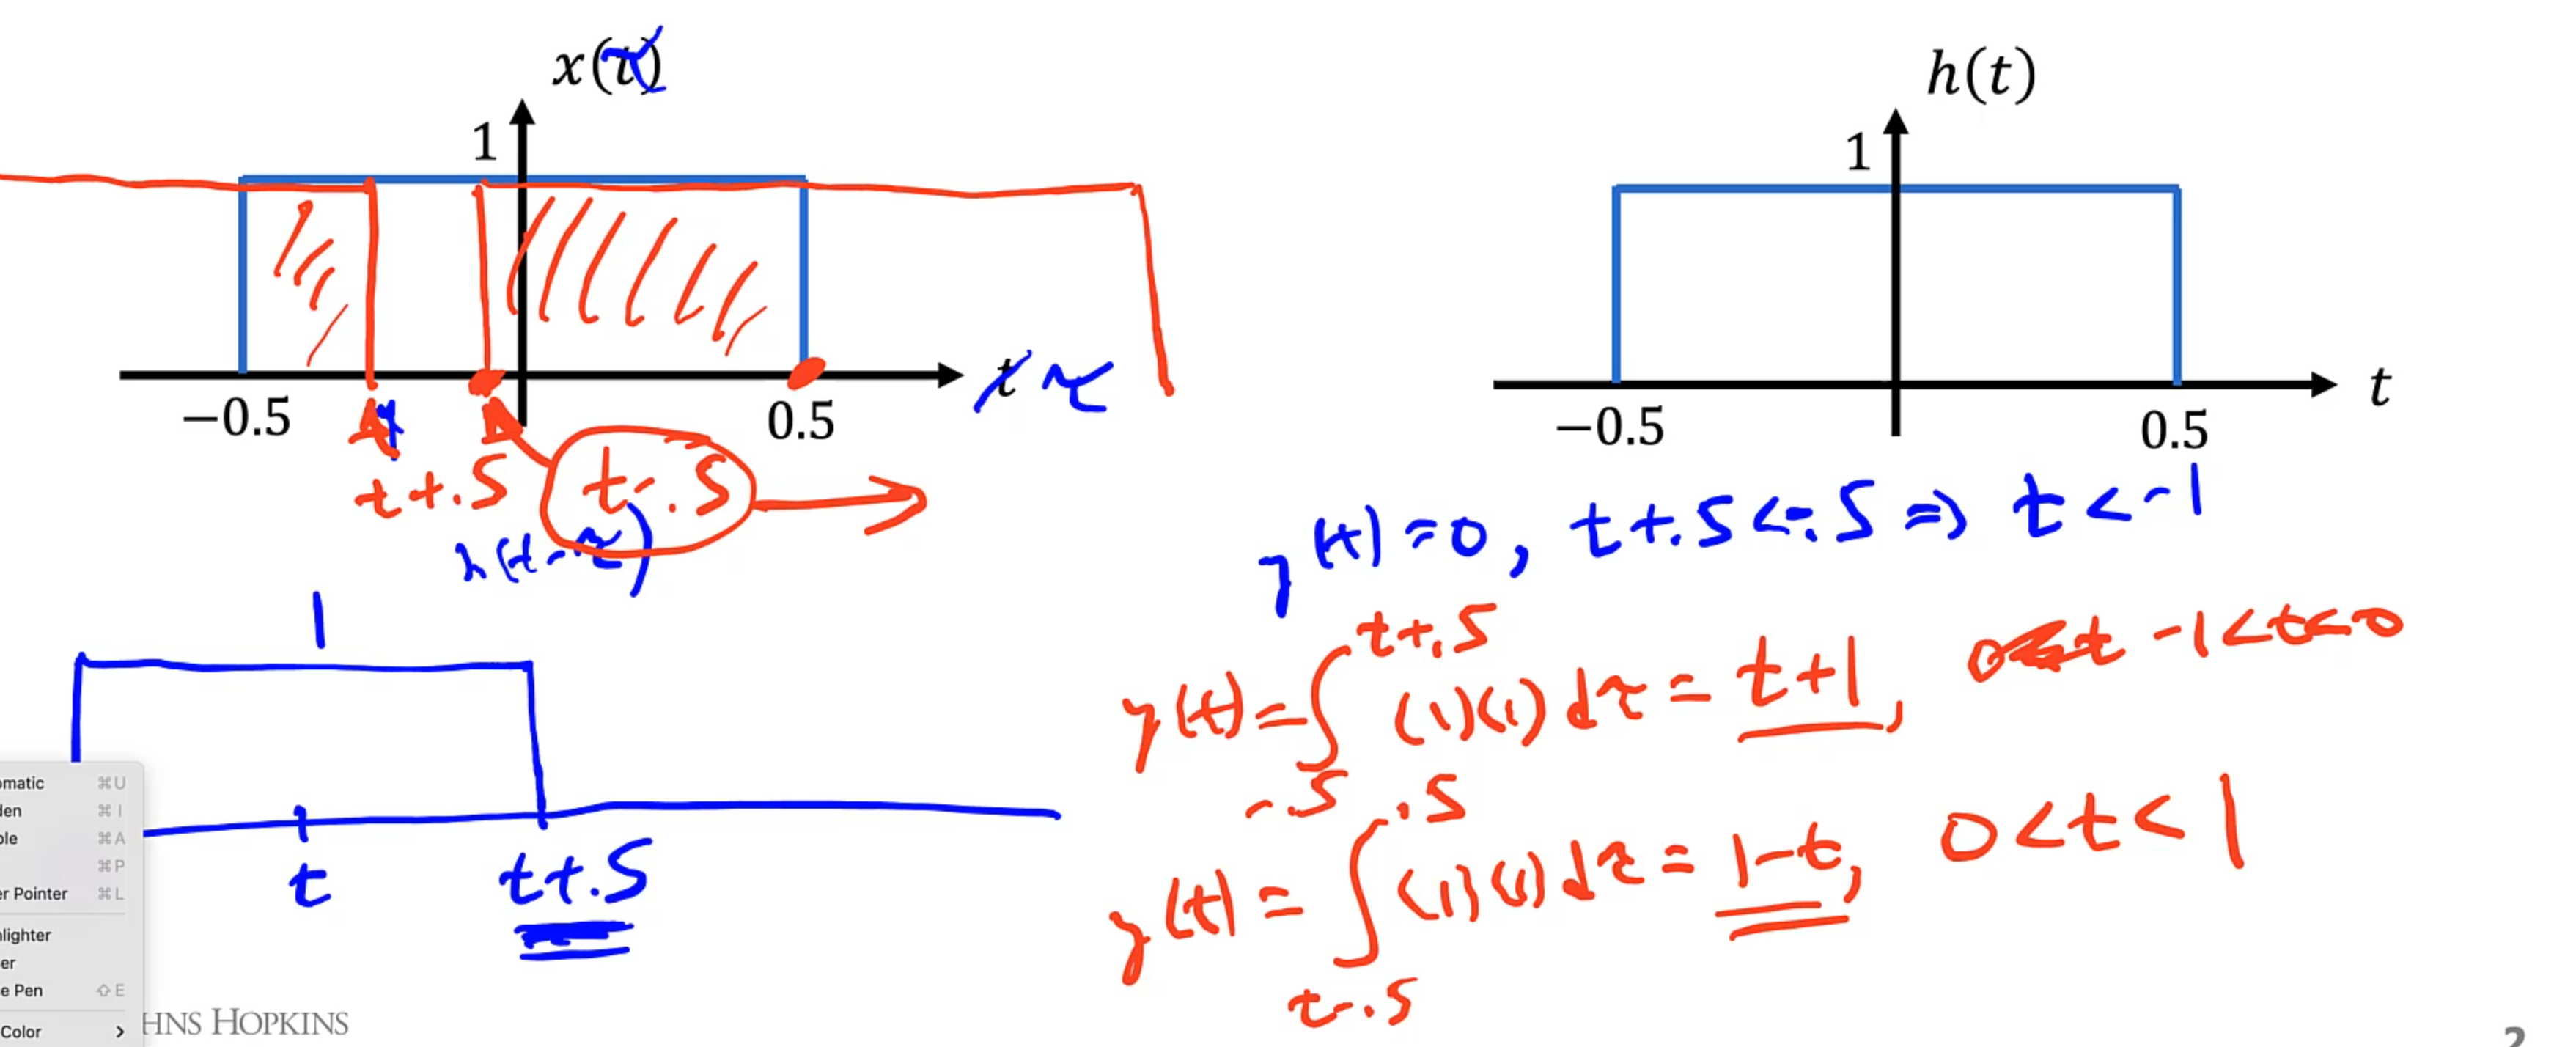 x(τ)
h(t)
1
1
−0.5
0.5
t τ
−0.5
0.5
t
t+.5
t-.5
h(t-τ)
y(t)=0, t+.5<-.5 ⇒ t<-1
1
y(t)=∫ t+.5 -.5 (1)(1)dτ = t+1, -1<t<0
y(t)=∫ .5 t-.5 (1)(1)dτ = 1-t, 0<t<1
t
t+.5
omatic ⌘U
den ⌘I
ble ⌘A
⌘P
er Pointer ⌘L
hlighter
er
e Pen ⇧E
Color >
HNS HOPKINS
2